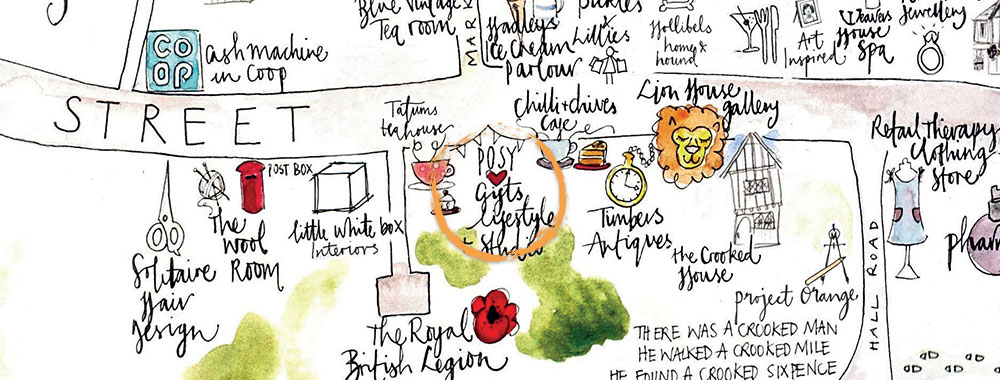 Blue Vintage
Tea room
MAR
Hadleys
Ice Cream
Parlour
Pickles
x
Lillies
Hollibels
home &
hound
Art
Inspired
Weavers
House
Spa
Jewellery
CO
OP
Cash machine
in Coop
STREET
Tatums
teahouse
Chilli + chives
Cafe
Lion House
gallery
Retail Therapy
Clothing
Store
POST BOX
POSY
Gifts
Lifestyle
+ Studio
The
Wool
Room
little white box
Interiors
Timbers
Antiques
the Crooked
House
Solitaire
Hair
Design
The Royal
British Legion
project Orange
HALL ROAD
pharm
THERE WAS A CROOKED MAN
HE WALKED A CROOKED MILE
HE FOUND A CROOKED SIXPENCE